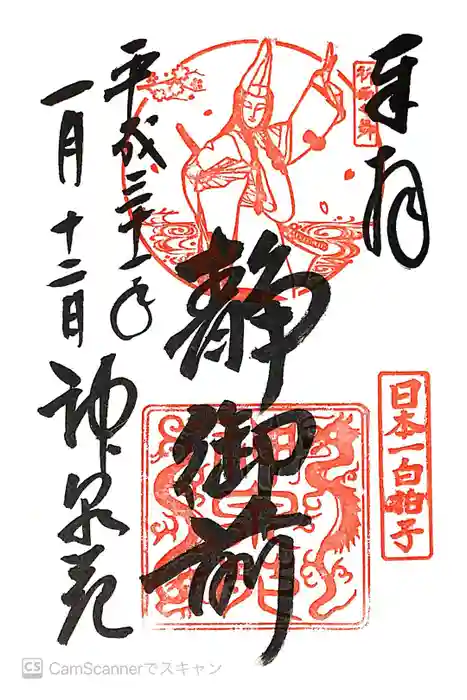 奉拝
静御前
日本一白拍子
平成三十一年
一月十二日
神泉苑
CS CamScannerでスキャン